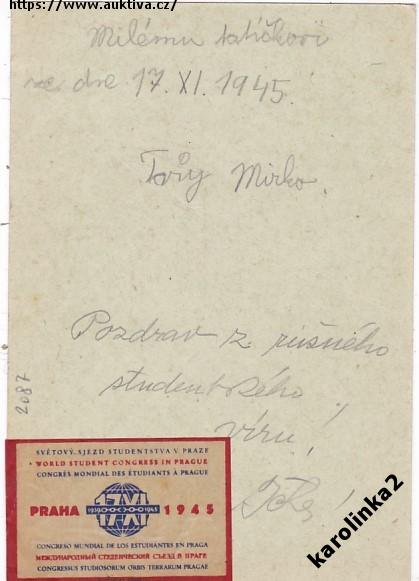 https://www.auktiva.cz/
Milému tatíčkovi
ze dne 17. XI. 1945.
Tvůj Mirko.
Pozdrav z rušného
studentského
víru!
2087
SVĚTOVÝ SJEZD STUDENTSTVA V PRAZE
WORLD STUDENT CONGRESS IN PRAGUE
CONGRÈS MONDIAL DES ÉTUDIANTS À PRAGUE
PRAHA 1939 17 XI 1945 1945
CONGRESO MUNDIAL DE LOS ESTUDIANTES EN PRAGA
МЕЖДУНАРОДНЫЙ СТУДЕНЧЕСКИЙ СЪЕЗД В ПРАГЕ
CONGRESSUS STUDIOSORUM ORBIS TERRARUM PRAGAE
karolinka2